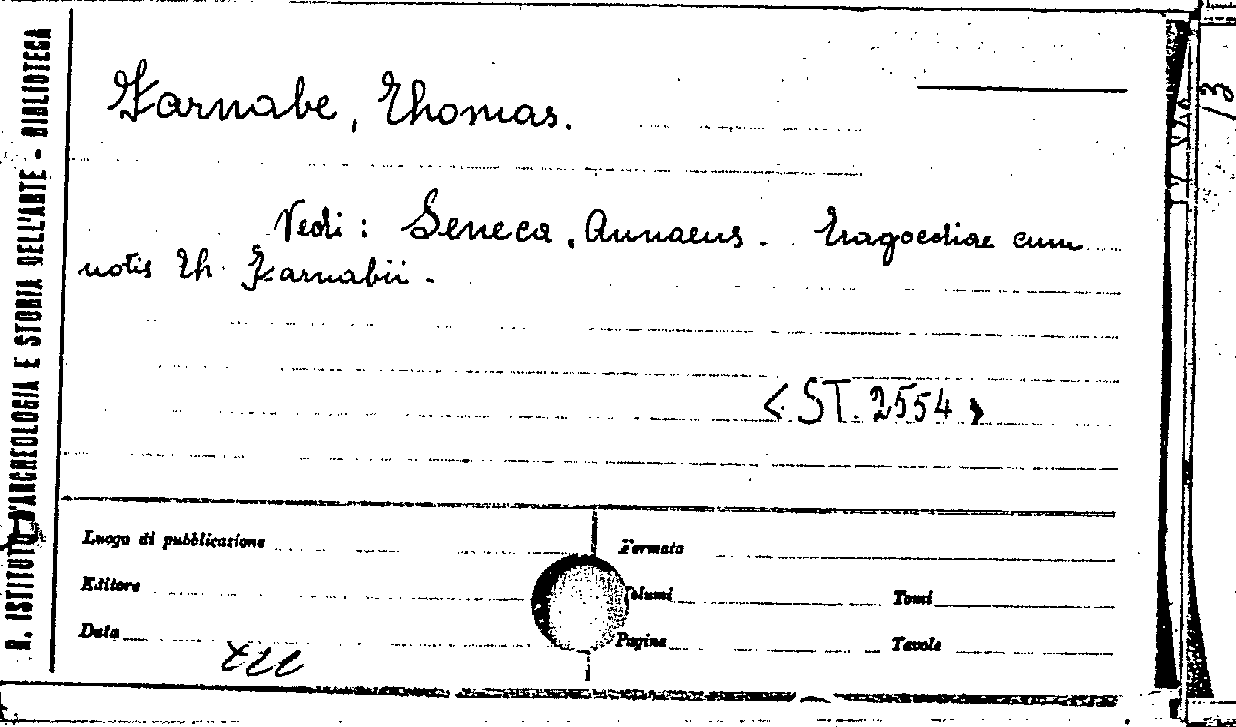 R. ISTITUTO D'ARCHEOLOGIA E STORIA DELL'ARTE - BIBLIOTECA
Farnabe, Thomas.
Vedi: Seneca, Annaeus. Tragoediae cum
notis Th. Farnabii.
<ST. 2554>
Luogo di pubblicazione
Formato
Editore
Volumi
Tomi
Data
Pagine
Tavole
13